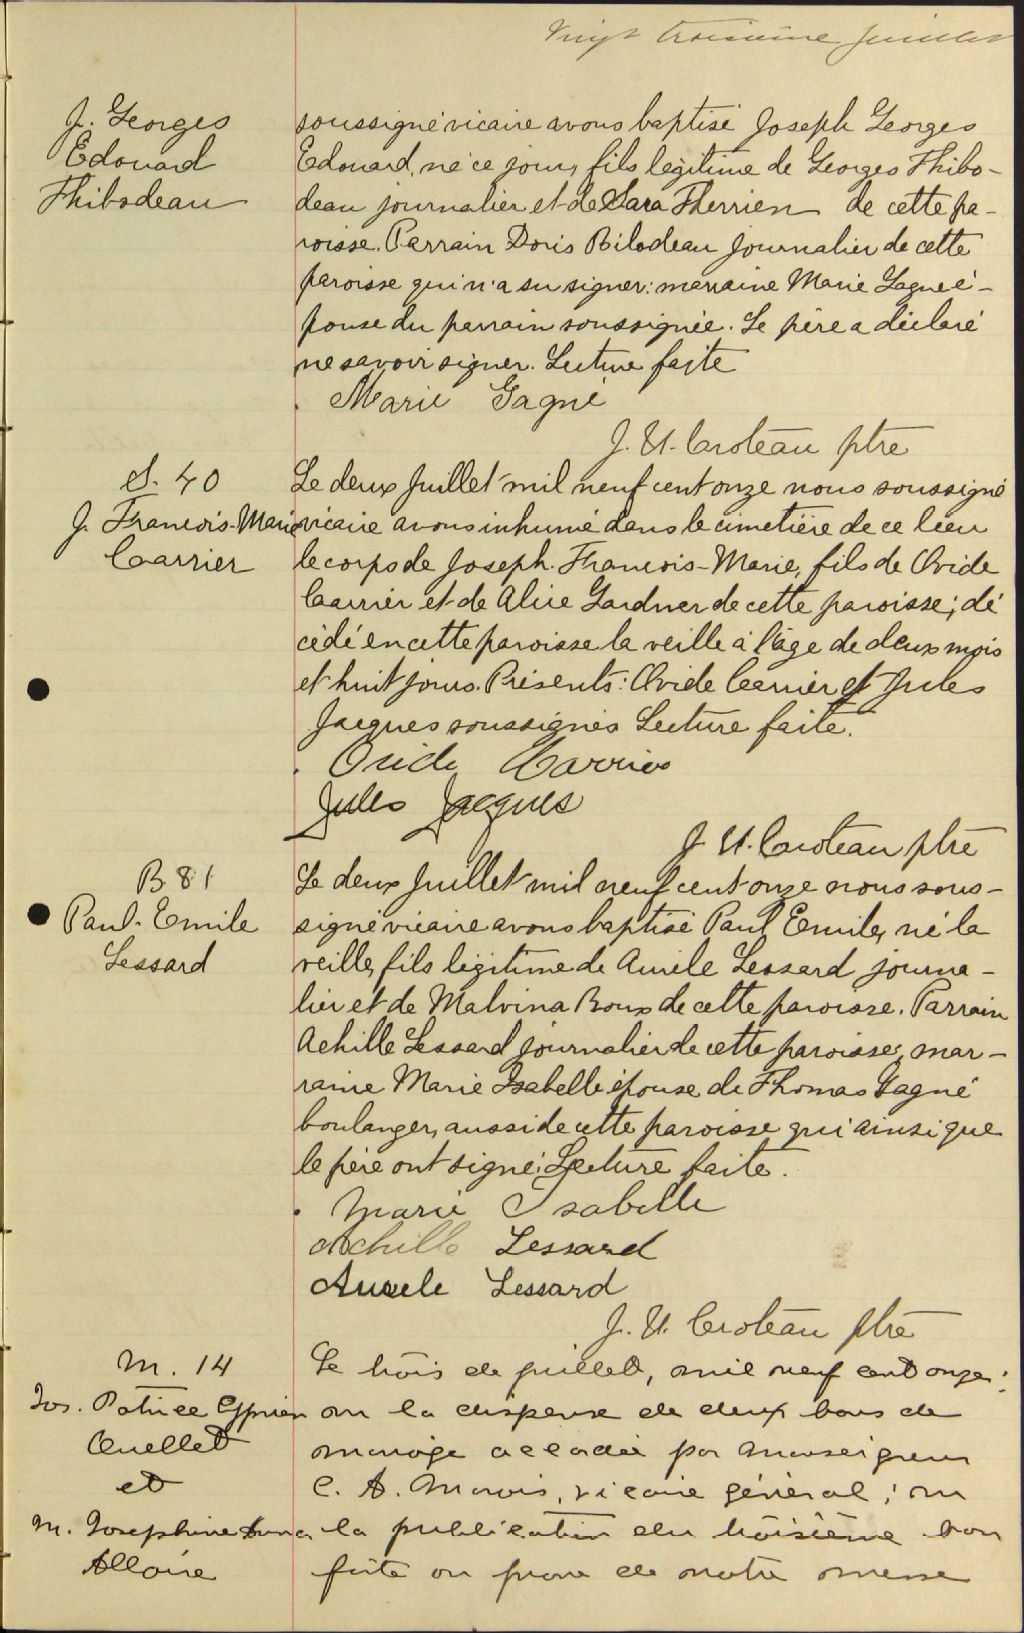 Vingt troisième feuillet
J. Georges
Edouard
Thibodeau
soussigné vicaire avons baptisé Joseph Georges
Edouard, né ce jour, fils légitime de Georges Thibo-
deau journalier et de Sara Therrien de cette pa-
roisse. Parrain Doris Bilodeau journalier de cette
paroisse qui n'a su signer: marraine Marie Gagné é-
pouse du parrain soussignée. Le père a déclaré
ne savoir signer. Lecture faite
Marie Gagné
J. U. Croteau ptre
S. 40
J. Francois-Marie
Carrier
Le deux Juillet mil neuf cent onze nous soussigné
vicaire avons inhumé dans le cimetière de ce lieu
le corps de Joseph. Francois-Marie, fils de Ovide
Carrier et de Alice Gardner de cette paroisse; dé
cédé en cette paroisse la veille à l'âge de deux mois
et huit jours. Présents: Ovide Carrier et Jules
Jacques soussignés Lecture faite.
Ovide Carrier
Jules Jacques
J. U. Croteau ptre
B 81
Paul-Emile
Lessard
Le deux Juillet mil neuf cent onze nous sous-
signé vicaire avons baptisé Paul Emile, né la
veille, fils légitime de Aurèle Lessard journa-
lier et de Malvina Roux de cette paroisse. Parrain
Achille Lessard journalier de cette paroisse; mar-
raine Marie Isabelle épouse de Thomas Gagné
boulanger, aussi de cette paroisse qui ainsi que
le père ont signé. Lecture faite.
Marie Isabelle
Achille Lessard
Aurele Lessard
J. U. Croteau ptre
M. 14
Jos. Patrice Cyprien
Ouellet
et
M. Josephine Anna
Allaire
Le trois de juillet, mil neuf cent onze;
vu la dispense de deux bans de
mariage accordée par Monseigneur
C. A. Marois, vicaire général; vu
la publication du troisième ban
faite au prone de notre messe